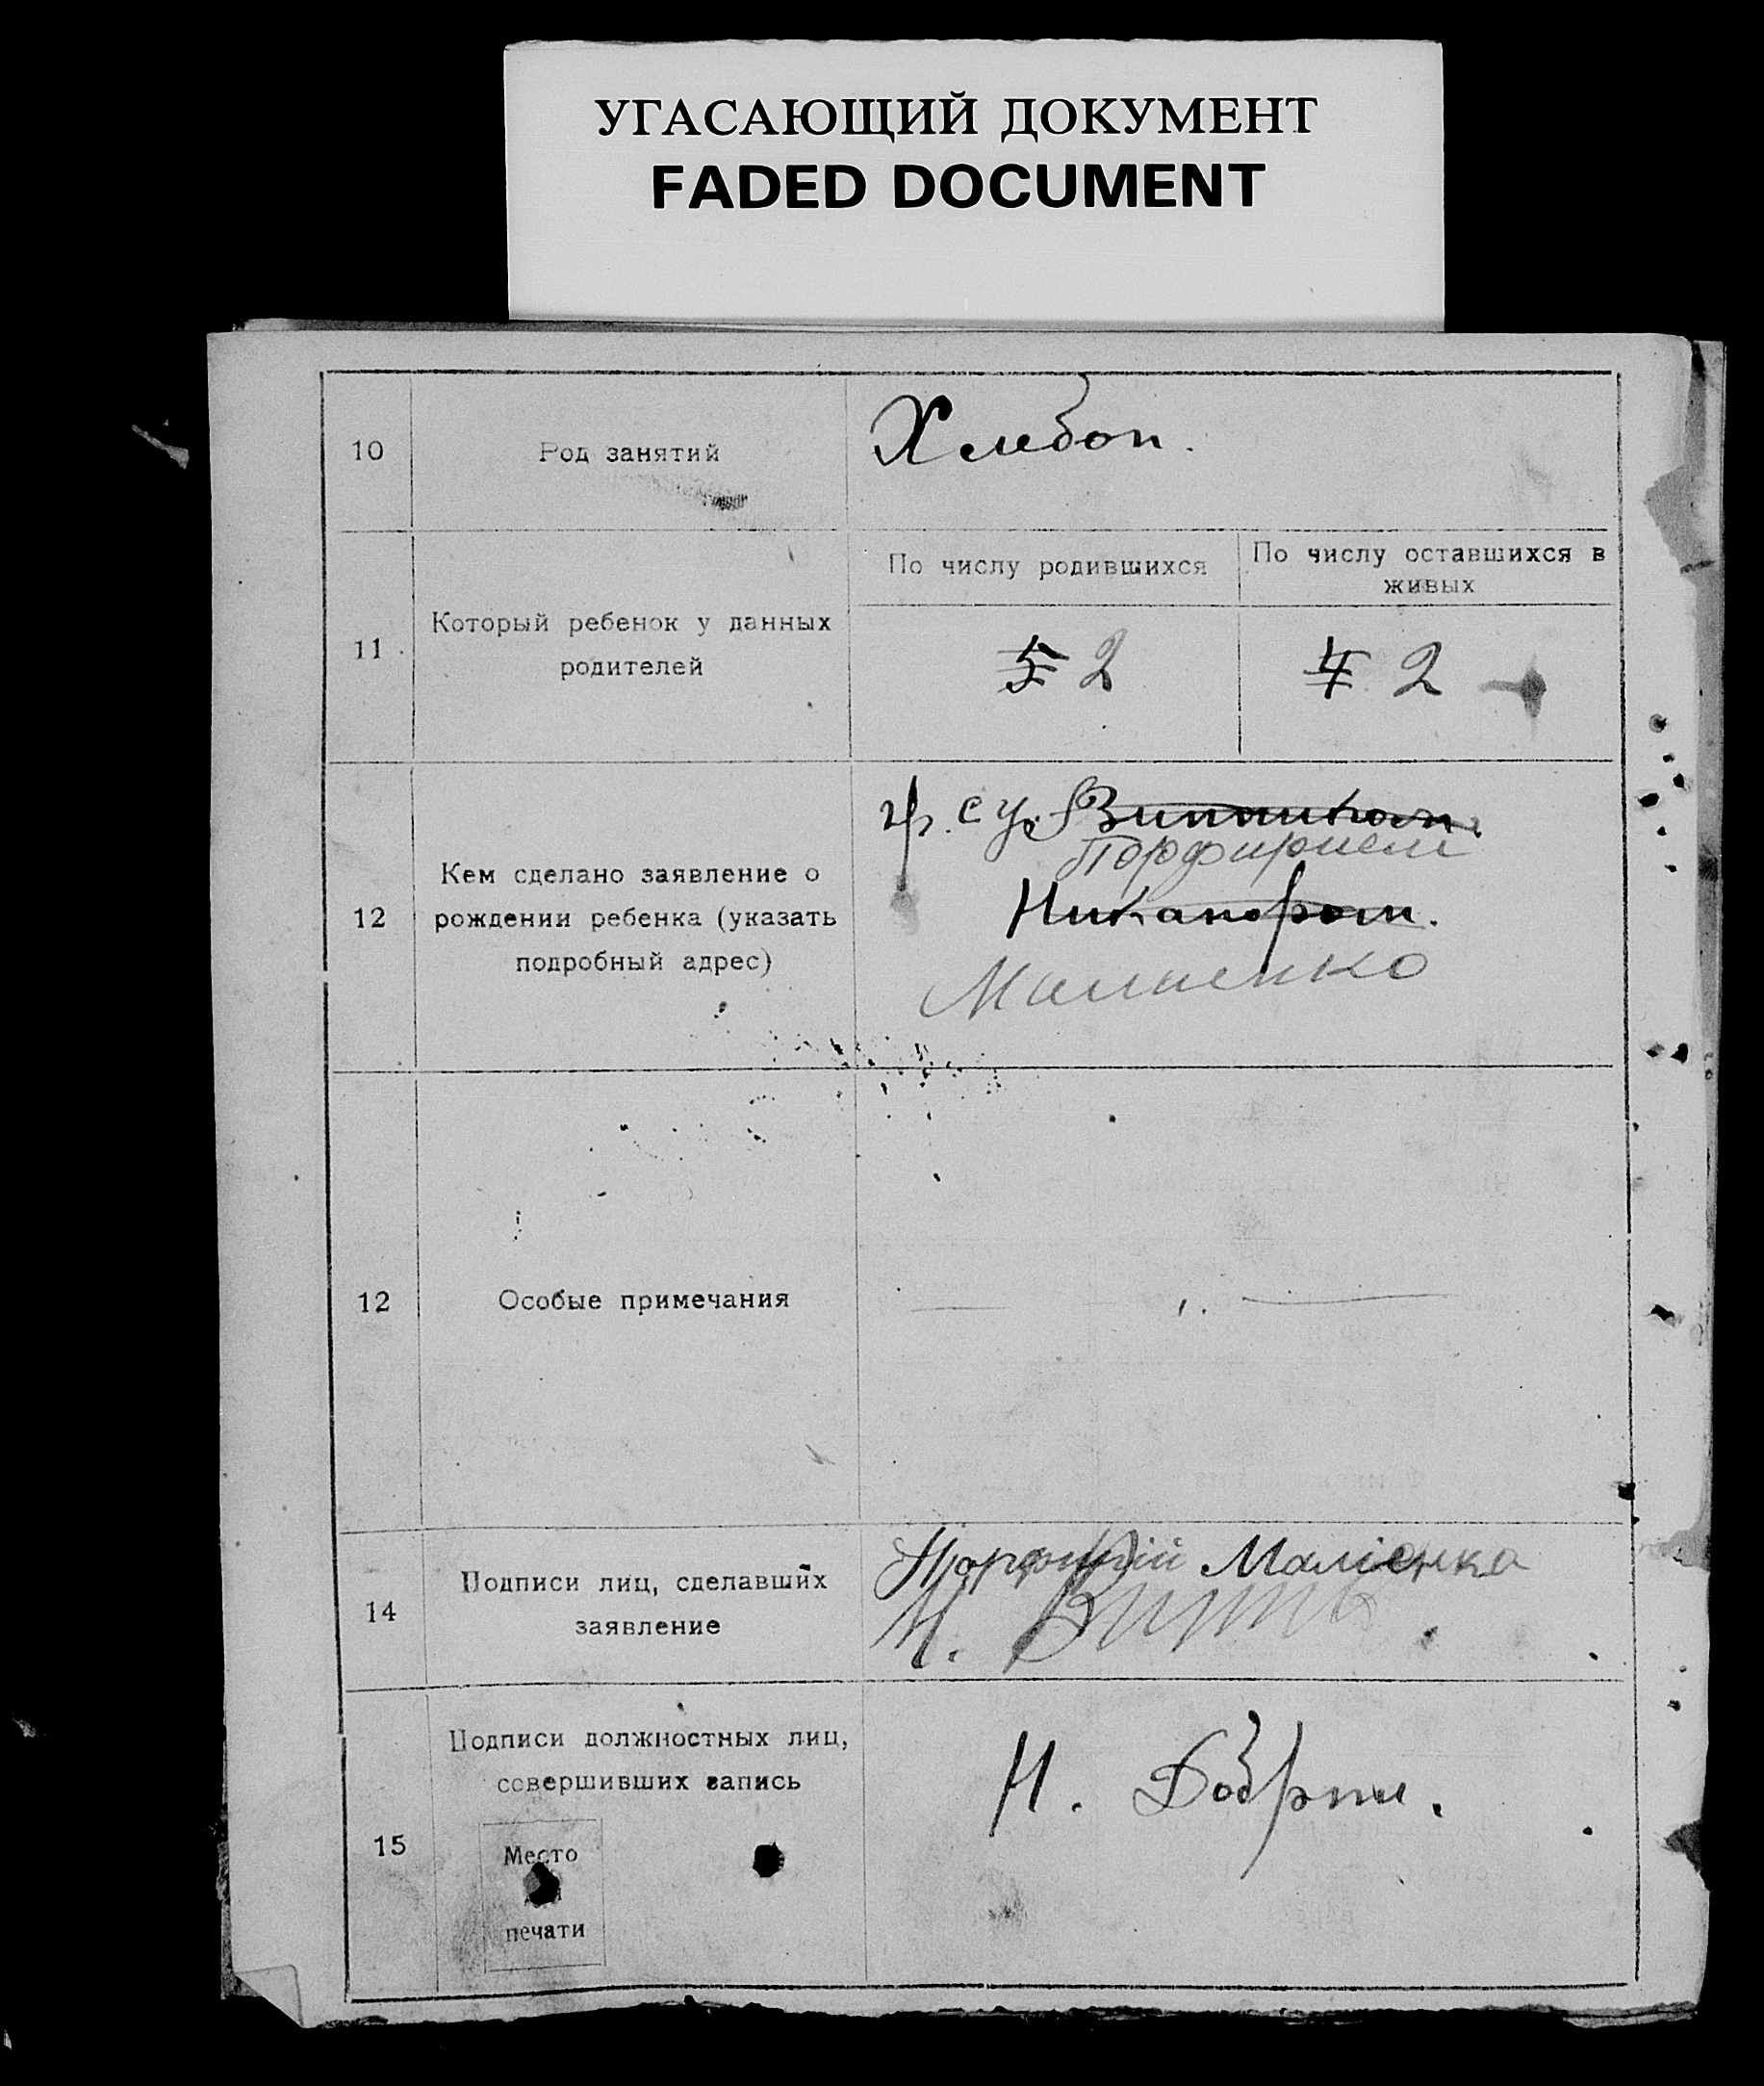 УГАСАЮЩИЙ ДОКУМЕНТ
FADED DOCUMENT
10
Род занятий
Хлебоп.
11
Который ребенок у данных
родителей
По числу родившихся
По числу оставшихся в
живых
5 2
4 2
12
Кем сделано заявление о
рождении ребенка (указать
подробный адрес)
гр. с
Порфирием
Никанором.
Малиенко
12
Особые примечания
14
Подписи лиц, сделавших
заявление
Порфирій Маліенко
Н.
15
Подписи должностных лиц,
совершивших запись
Место
печати
Н.